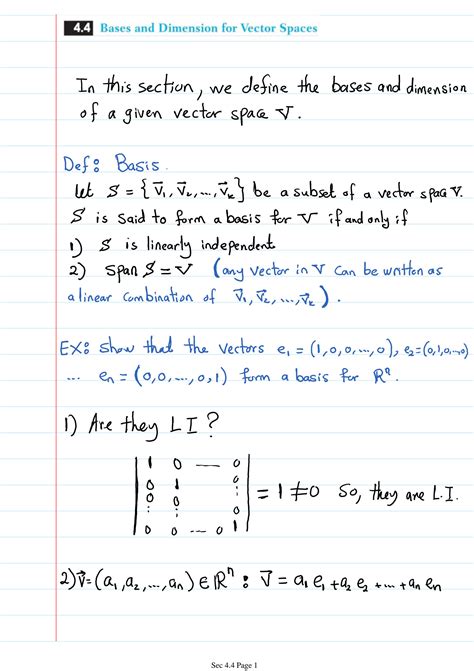 4.4 Bases and Dimension for Vector Spaces
In this section, we define the bases and dimension
of a given vector space V.
Def: Basis.
Let S = {v⃗₁, v⃗₂, ..., v⃗ₖ} be a subset of a vector space V.
S is said to form a basis for V if and only if
1) S is linearly independent
2) span S = V (any vector in V can be written as
a linear combination of v⃗₁, v⃗₂, ..., v⃗ₖ).
EX: Show that the vectors e₁ = (1,0,0,...,0), e₂=(0,1,0,..,0)
... eₙ = (0,0,...,0,1) form a basis for ℝⁿ.
1) Are they L I ?
| 1 0 — 0
0 1 0
0 0 :
: : 0
0 0 ... 0 1 | = 1 ≠ 0 So, they are L.I.
2) v⃗ = (a₁, a₂, ..., aₙ) ∈ ℝⁿ : v⃗ = a₁ e₁ + a₂ e₂ + ... + aₙ eₙ
Sec 4.4 Page 1